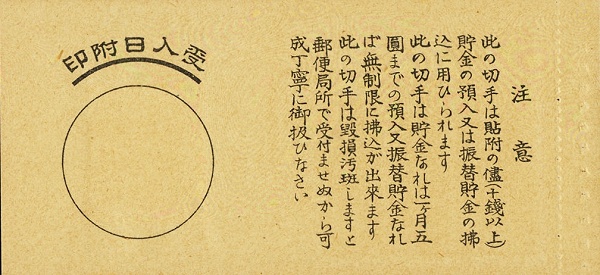 注意
此の切手は貼附の儘(十錢以上)
貯金の預入又は振替貯金の拂
込に用ひられます
此の切手は貯金なれは一ヶ月五
圓までの預入又振替貯金なれ
ば無制限に拂込が出來ます
此の切手は毀損汚斑しますと
郵便局所で受付ませぬから可
成丁寧に御扱ひなさい
受入日附印